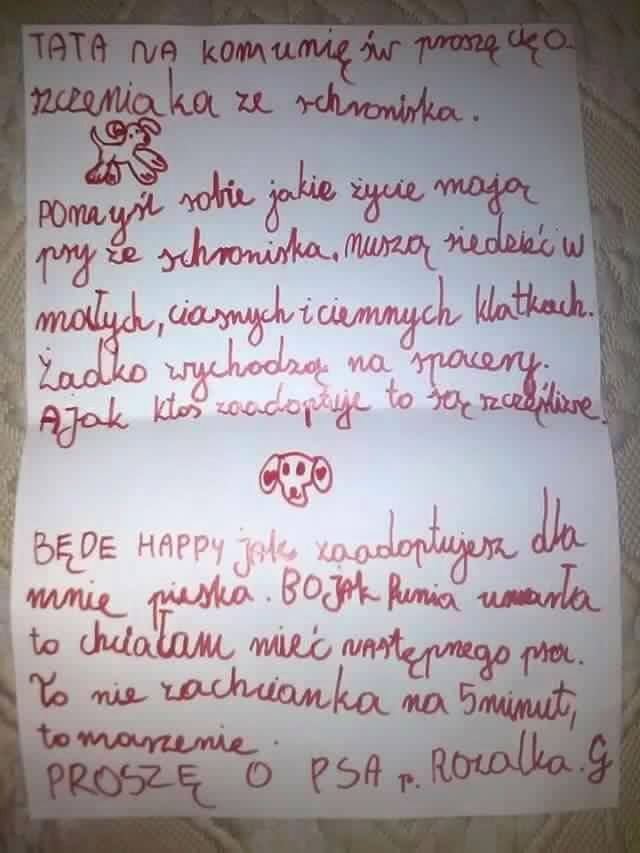 TATA NA komunię św proszę cię O.
szczeniaka ze schroniska.
POmayśl sobie jakie życie mają
psy ze schroniska. Muszą siedzieć w
małych, ciasnych i ciemnych klatkach.
Żadko wychodzą na spacery.
A jak ktoś zaadoptuje to są szczęśliwe.
BĘDE HAPPY jak zaadoptujesz dla
mnie pieska. BO jAk Punia umarła
to chciałam mieć NASTępnego psa.
To nie zachcianka na 5 minut,
to marzenie.
PROSZĘ O PSA p. Rozalka. G